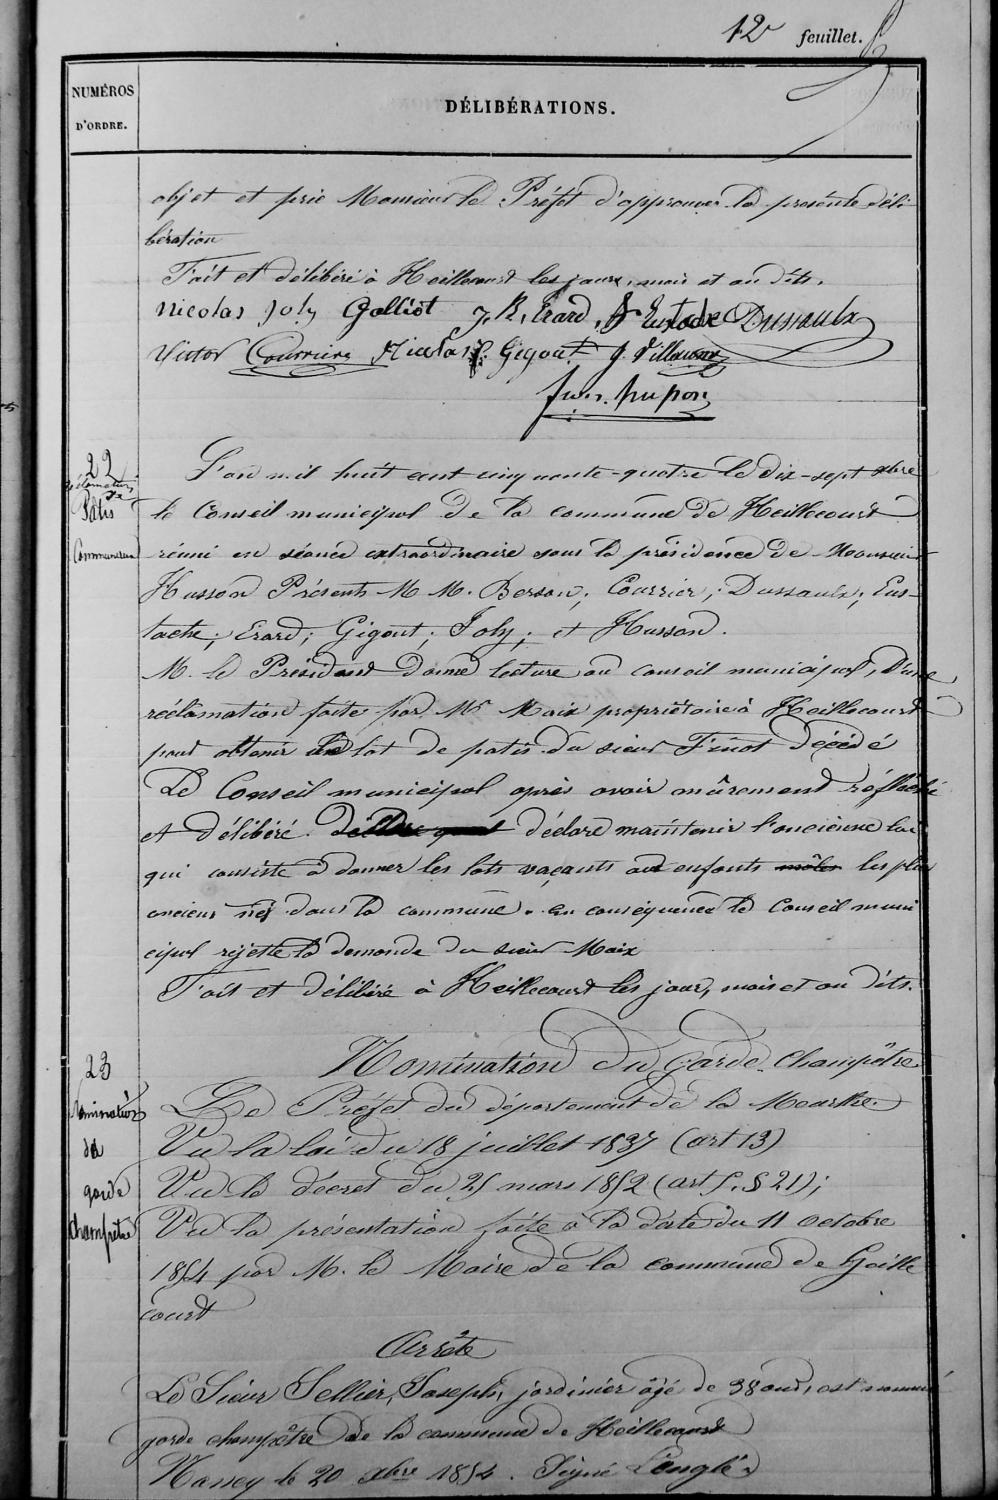 12e feuillet.
NUMÉROS
D'ORDRE.
DÉLIBÉRATIONS.
objet et prie Monsieur le Préfet d'approuver la présente déli-
bération
Fait et délibéré à Heillecourt les jour, mois et an dits.
Nicolas Joly Galliot J. B. Erard, Eustache Dussaulx
Victor Courrier Nicolas Gigout J. Villaume
22
Réclamation
de
Patis
Communaux
L'an mil huit cent cinquante-quatre le dix-sept xbre
le Conseil municipal de la commune de Heillecourt
réuni en séance extraordinaire sous la présidence de Monsieur
Husson Présents M M. Berson; Courrier; Dussaulx; Eus-
tache; Erard; Gigout; Joly; et Husson.
M. le Président donne lecture au conseil municipal, d'une
réclamation faite par Mr Maix propriétaire à Heillecourt
pour obtenir un lot de patis du sieur Finot décédé
Le Conseil municipal après avoir mûrement réfléchi
et délibéré déclare maintenir l'ancienne loi
qui consiste à donner les lots vaçants aux enfants mâles les plus
anciens nés dans la commune. En conséquence le Conseil muni
cipal rejette la demande du sieur Maix
Fait et délibéré à Heillecourt les jour, mois et an dits.
23
Nomination
du
garde
champêtre
Nomination du Garde-Champêtre
Le Préfet du département de la Meurthe.
Vu la loi du 18 juillet 1837 (art 13)
Vu le décret du 25 mars 1852 (art 5. § 21);
Vu la présentation faite à la date du 11 octobre
1854 par M. le Maire de la commune de Heille
court
Arrête
Le Sieur Sellier, Joseph, jardinier âgé de 38 ans, est nommé
garde champêtre de la commune de Heillecourt
Nancy le 20 xbre 1854. Signé Lenglé.